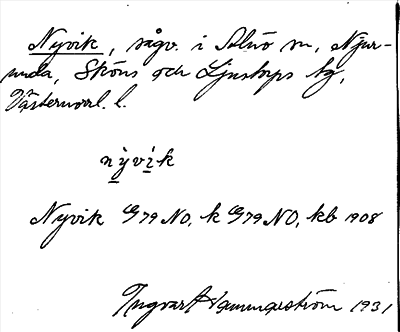 Nyvik, sågv. i Selnö sn, Njur-
unda, Sköns och Ljustorps tg,
Västernorrl. l.
nỳvik
Nyvik G79 NO, k G79 NO, kb 1908
Ingvar Hammarström 1931